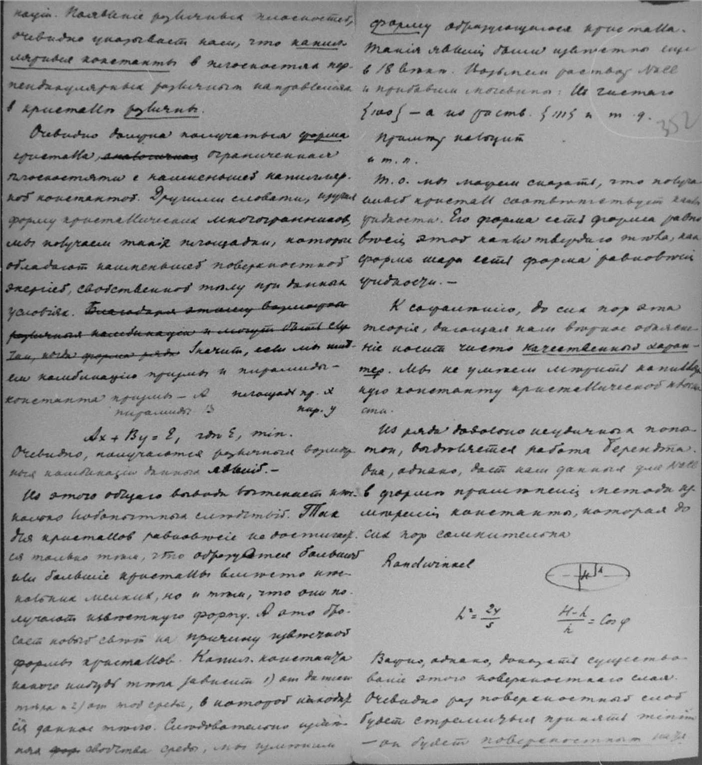 нацiй. Появленiе различных плоскостей,
очевидно указывает нам, что капил-
лярныя константы в плоскостях пер-
пендикулярных различным направленiям
в кристалле различны.
Очевидно должна получаться форма
кристалла, ограниченная
плоскостями с наименьшей капилляр-
ной константой. Другими словами, изучая
форму кристаллических многогранников,
мы получаем такiя площадки, которыя
обладают наименьшей поверхностной
энергiей, свойственной телу при данных
условiях. Благодаря этому возможны
различныя комбинацiи и могут быть слу-
чаи, когда форма ряда Значит, если мы име-
ем комбинацiю призмы и пирамиды –
константа призмы – А площадь пр. x
пирамиды B пир. y
Ax + By = E, где E, min.
Очевидно, получаются различныя возмож-
ныя комбинацiи данных явленiй. –
Из этого общаго вывода вытекает не-
сколько любопытных следствiй. Так
для кристаллов равновесiе не достигает-
ся только тем, что образуется больший
или большiе кристаллы вместо не-
скольких мелких, но и тем, что они по-
лучают известную форму. А это бро-
сает новый свет на причину известной
формы кристаллов. Капил. константа
какого нибудь тела зависит 1) от даннаго
тела и 2) от той среды, в которой находит-
ся данное тело. Следовательно изме-
няя свойства среды, мы изменим
форму образующагося кристалла.
Такiя явленiя были известны еще
в 18 веке. Возьмем раствор NaCl
и прибавим мочевины: Из чистаго
{100} – а из раств. {111} и т. д.
352
Пример наводит
и т. п.
Т. о. мы можем сказать, что получа-
емый кристалл соответствует капле
жидкости. Его форма есть форма равно-
весiя этой капли твердаго тела, как
форма шара есть форма равновесiя
жидкости. –
К сожаленiю, до сих пор эта
теорiя, дающая нам верное объясне-
нiе носит чисто качественный харак-
тер. Мы не умеем мерить капилляр-
ную константу кристаллической плоско-
сти.
Из ряда довольно неудачных попы-
ток, выделяется работа Берендта.
Она, однако, дает нам данныя для NaCl
в форме примененiя метода из-
меренiя константы, которая до
сих пор сомнительна
Randwinkel
H h
h² = 2γ/s H–h/h = Cos φ
Важно, однако, доказать существо-
ванiе этого поверхностнаго слоя.
Очевидно раз поверхностный слой
будет стремиться принять minim
– он будет поверхностным